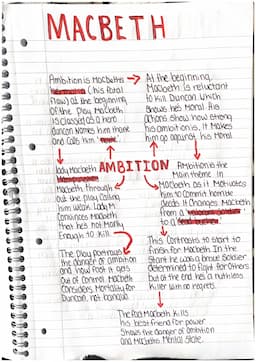 MACBETH
Ambition is Macbeths
(his fatal
flaw) at the beginning
of the play Macbeth
is classed as a hero
Duncan names him thane
and calls him
At the beginning
Macbeth is reluctant
to kill Duncan which
shows he's Moral. His
actions show how strong
his ambition is. It Makes
him go against his Moral
AMBITION
Lady Macbeth
Macbeth through
out the play Calling
him weak. Lady M
Convinces Macbeth
that he's not Manly
Enough to kill
Ambition is the
Main theme in
Macbeth as it Motivates
him to Commit horrific
deeds. It Changes Macbeth
from a
to a
The Play portrays
the danger of ambition
and how fast it gets
out of control. Macbeth
Considers Mortality for
Duncan, not banquo.
This Contrasts to start to
finish for Macbeth. In the
Start he was a brave Soldier
determined to fight for others
but at the end he's a ruthless
killer with no regrets.
The fact Macbeth kills
his best friend for power
Shows the danger of ambition
and Macbeths Mental State.